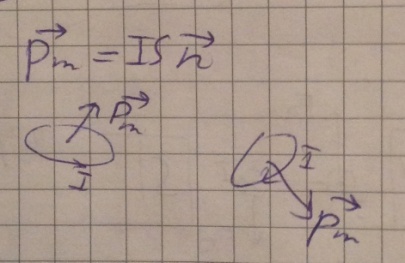 p⃗ₘ = IS n⃗
p⃗ₘ
I
I
p⃗ₘ